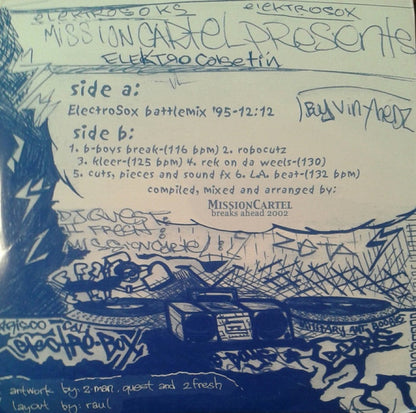 ELEKTROSOKS
ELEKTROSOX
MISSION CARTEL PRESENTS
ELEKTRO
side a:
ElectroSox battlemix '95-12:12
side b:
1. b-boys break-(116 bpm) 2. robocutz
3. kleer-(125 bpm) 4. rek on da weels-(130)
5. cuts, pieces and sound fx 6. L.A. beat-(132 bpm)
compiled, mixed and arranged by:
MISSIONCARTEL
breaks ahead 2002
DJ QUEST
MISSION CARTEL
MILITARY ANT
artwork by: z-man, quest and 2fresh
layout by: raul